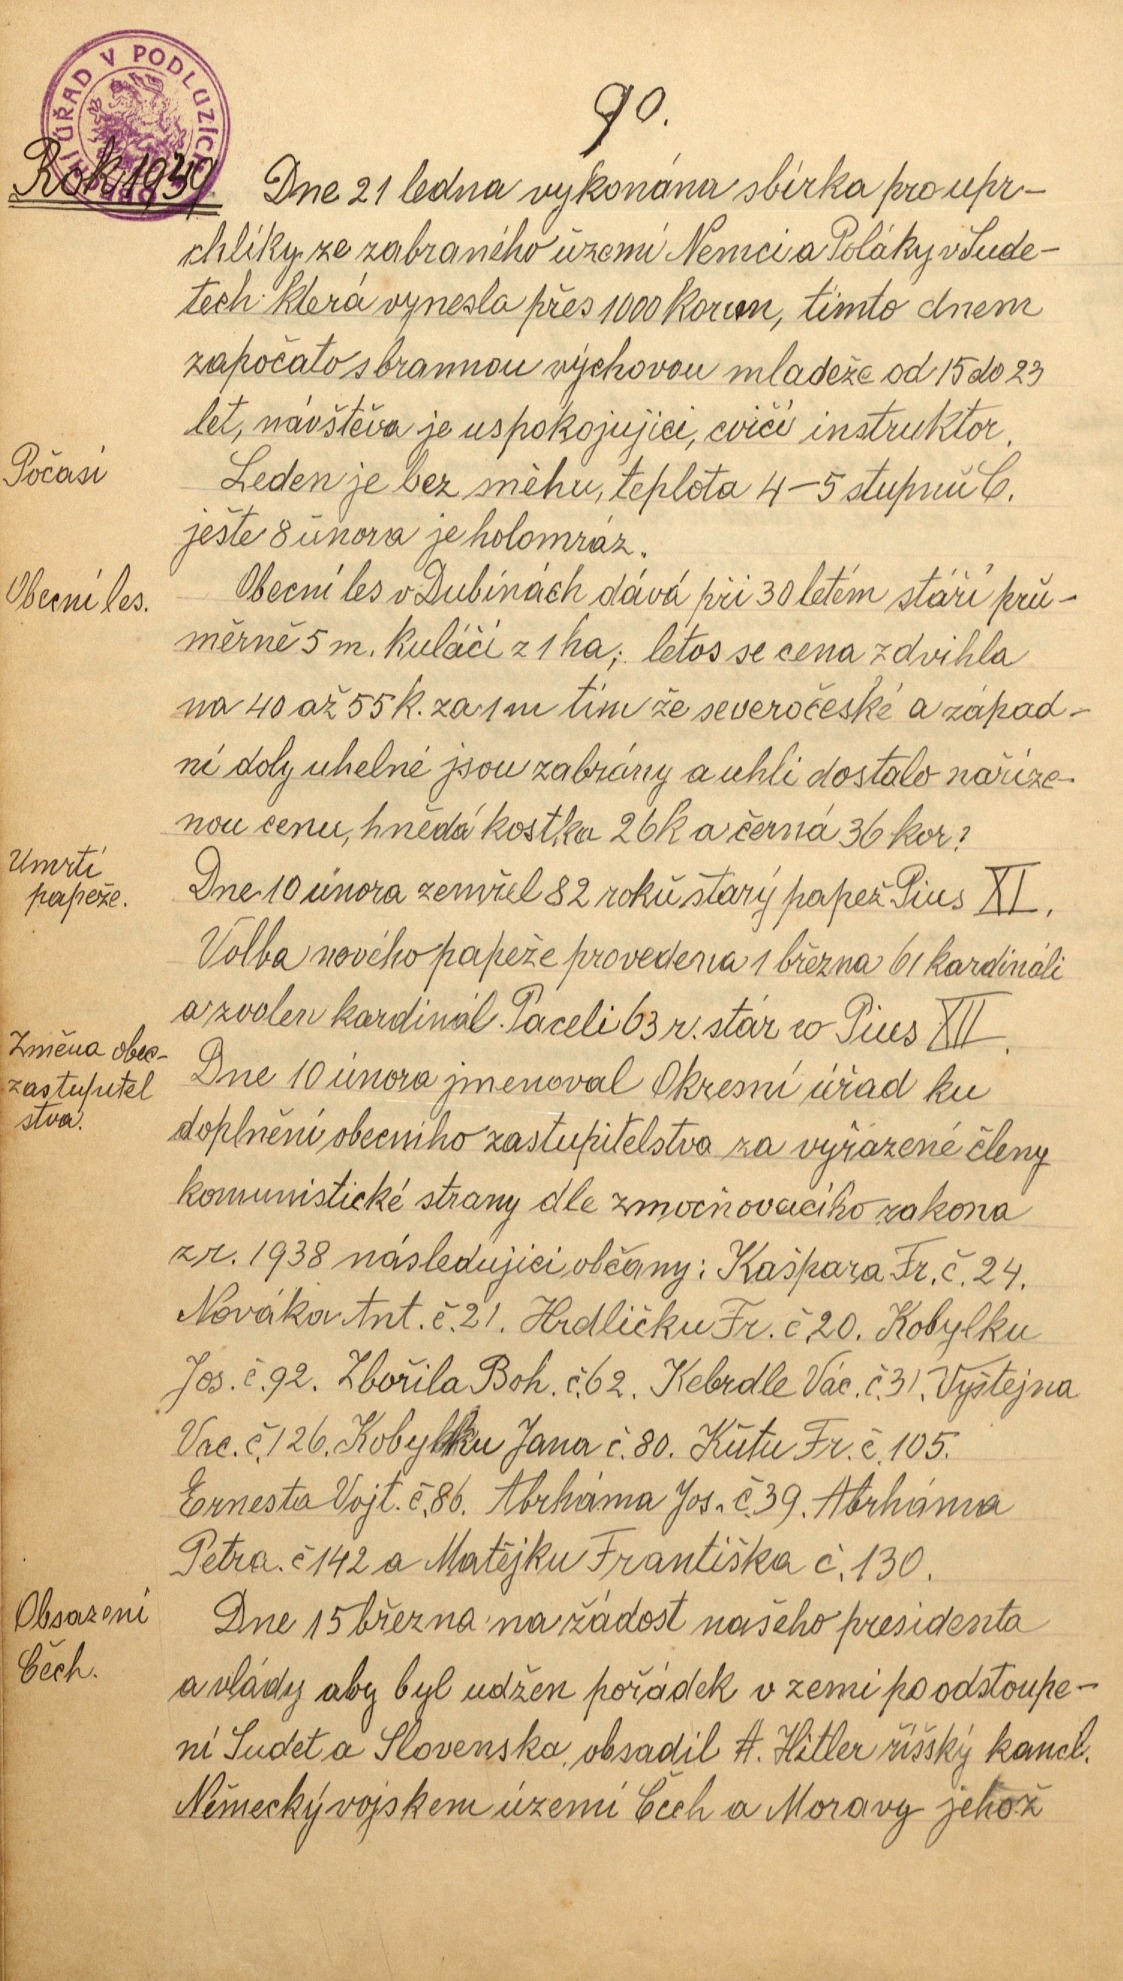 ÚŘAD V PODLUZÍCH
90.
Rok 1939
Dne 21 ledna vykonána sbírka pro upr-
chlíky ze zabraného území Nemci a Poláky v Sude-
tech která vynesla přes 1000 korun, tímto dnem
započato s brannou výchovou mladeže od 15 do 23
let, návštěva je uspokojujici, cvičí instruktor.
Počasi
Leden je bez sněhu, teplota 4-5 stupnů C.
ješte 8 února je holomráz.
Obecní les.
Obecní les v Dubinách dává při 30 letém stáří prů-
měrně 5 m. kuláčí z 1 ha; létos se cena zdvihla
na 40 až 55 k. za 1 m tím že severočeské a západ-
ní doly uhelné jsou zabrány a uhli dostalo nařize-
nou cenu, hnědá kostka 26 k a černá 36 kor?
Umrtí
papeže.
Dne 10 února zemřel 82 roků starý papež Pius XI.
Volba nového papeže provedena 1 března 61 kardináli
a zvolen kardinál Paceli 63 r. stár co Pius XII.
Změna obec-
zastupitel
stva.
Dne 10 února jmenoval Okresní úřad ku
doplnění obecního zastupitelstva za vyřazené členy
komunistické strany dle zmocňovacího zakona
z r. 1938 následujici občany: Kašpara Fr. č. 24.
Nováka Ant. č. 21. Hrdličku Fr. č 20. Kobylku
Jos. č. 92. Zbořila Boh. č. 62. Kebrdle Vác. č. 31. Vyštejna
Vac. č. 126. Kobylku Jana č. 80. Kůtu Fr. č. 105.
Ernesta Vojt. č. 86. Abrháma Jos. č. 39. Abrháma
Petra. č 142 a Matějku Františka č. 130.
Obsazení
Čěch.
Dne 15 března na žádost našeho presidenta
a vlády aby byl udžen pořádek v zemi po odstoupe-
ní Sudet a Slovenska, obsadil A. Hitler říšský kancl.
Německý vojskem území Čěch a Moravy jehož